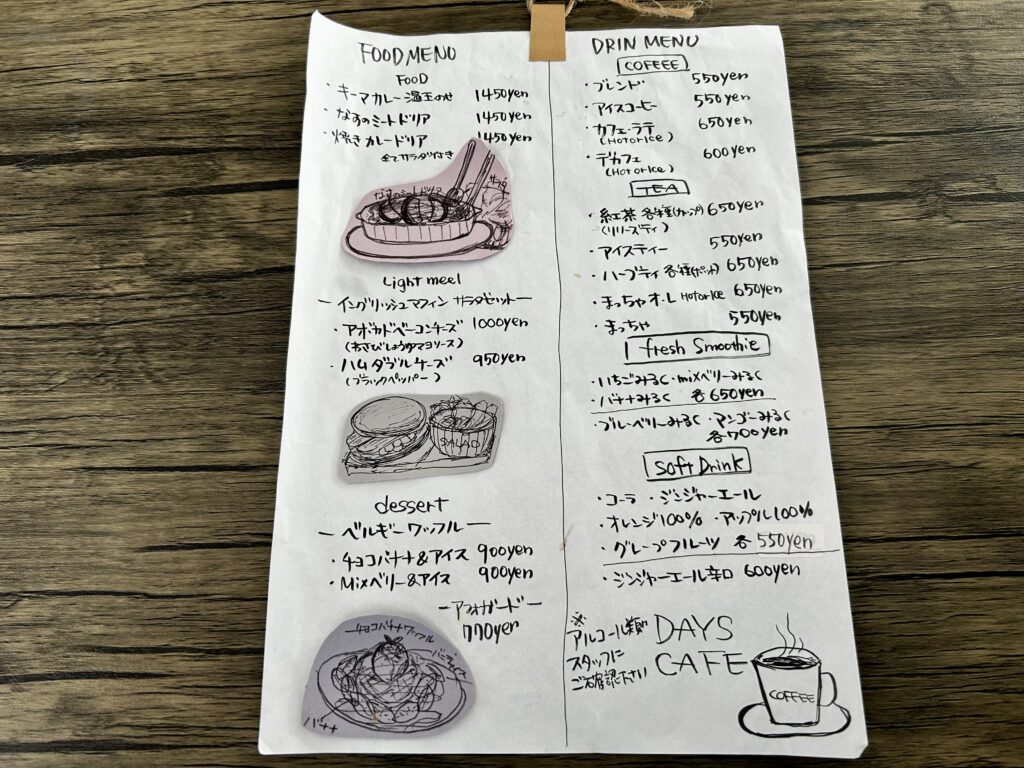 FOOD MENU
FOOD
・キーマカレー温玉のせ 1450yen
・なすのミートドリア 1450yen
・焼きカレードリア 1450yen
全てサラダ付き
なすのミートドリア
Light meel
ーイングリッシュマフィン サラダセットー
・アボカドベーコンチーズ 1000yen
(わさびしょうゆマヨソース)
・ハムダブルチーズ 950yen
(ブラックペッパー)
SALAD
dessert
ーベルギーワッフルー
・チョコバナナ&アイス 900yen
・Mixベリー&アイス 900yen
ーアフォガードー
770yen
チョコバナナワッフル
バニラアイス
バナナ
DRIN MENU
COFEEE
・ブレンド 550yen
・アイスコーヒー 550yen
・カフェ・ラテ 650yen
(Hot or Ice)
・デカフェ 600yen
(Hot or Ice)
TEA
・紅茶 各種(カップ) 650yen
(リリーズティ)
・アイスティー 550yen
・ハーブティ 各種(ポット) 650yen
・まっちゃオ・レ Hot or Ice 650yen
・まっちゃ 550yen
fresh Smoothie
・いちごみるく・mixベリーみるく
・バナナみるく 各650yen
・ブルーベリーみるく ・マンゴーみるく
各700yen
Soft Drink
・コーラ ・ジンジャーエール
・オレンジ100% ・アップル100%
・グレープフルーツ 各550yen
・ジンジャーエール辛口 600yen
※
アルコール類が
スタッフに
ご確認下さい
DAYS
CAFE
COFFEE